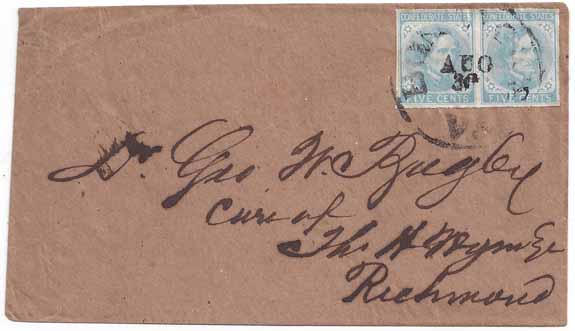 CONFEDERATE STATES CONFEDERATE STATES
AUG
FIVE CENTS FIVE CENTS
Dr. Geo W. Bagby
Care of
Thos H Wynne
Richmond